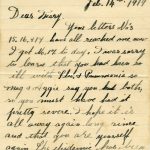 Feb. 14th 1919
Dear Fairy:
Your letters No's
15, 16, &17 have all reached me now
I got No. 17 to day. I was sorry
to learn that you had been so
ill with Flu & Pneumonia so
may say you had both,
so you must have had it
pretty severe. I hope it is
all away again long since
and that you are yourself
again The epidemic has been